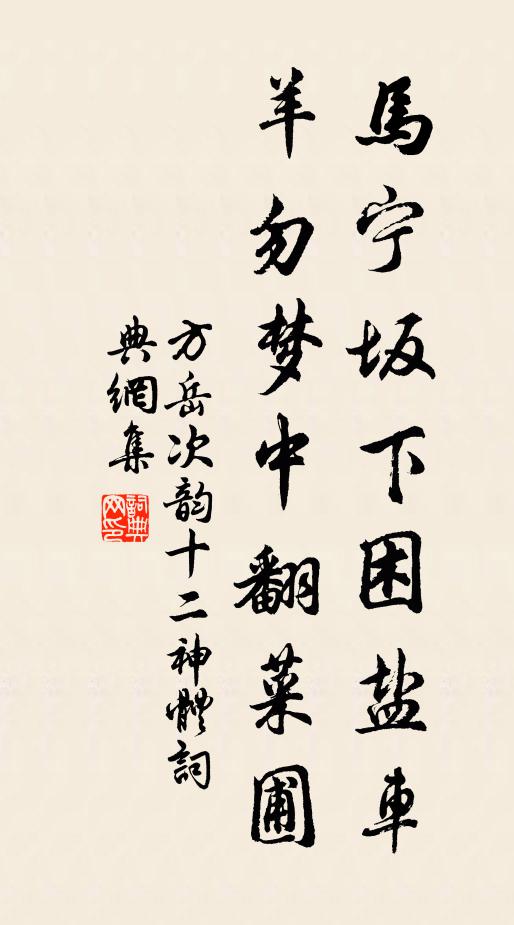 馬宁坂下困盐車
羊勿梦中翻菜圃
方岳次韵十二神體詞
典網集
詞典
网印